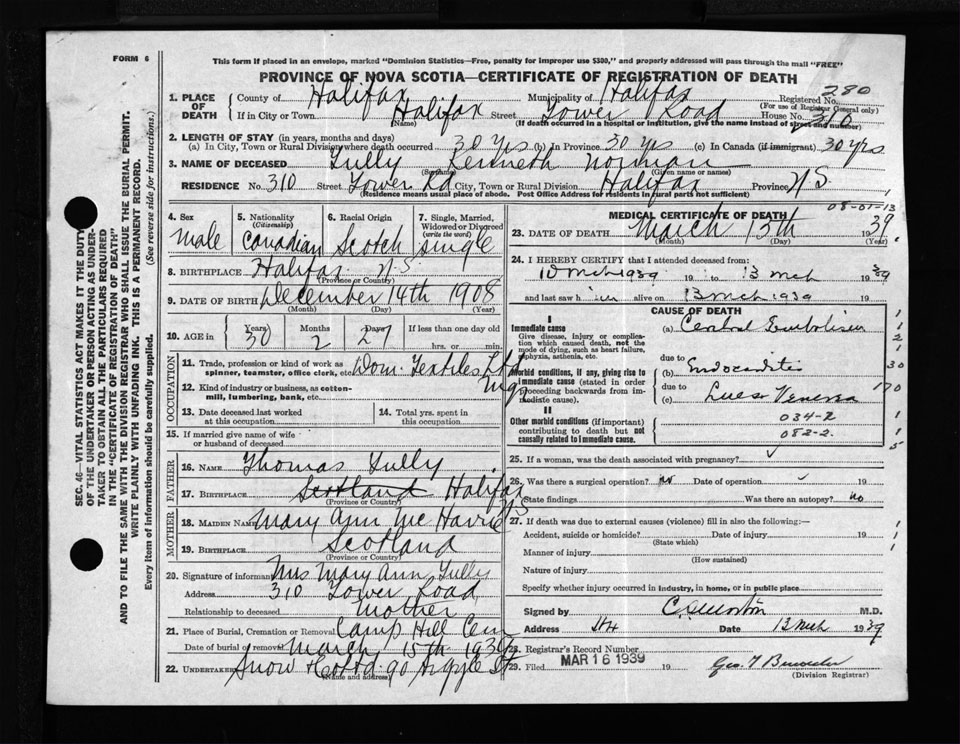 FORM 6
This form if placed in an envelope, marked "Dominion Statistics—Free, penalty for improper use $300," and properly addressed will pass through the mail "FREE"
PROVINCE OF NOVA SCOTIA—CERTIFICATE OF REGISTRATION OF DEATH
1. PLACE OF DEATH { County of Halifax Municipality of Halifax Registered No. 280
(For use of Registrar General only)
If in City or Town Halifax Street Tower Road House No. 310
(Name) (If death occurred in a hospital or institution, give the name instead of street and number)
2. LENGTH OF STAY (in years, months and days)
(a) In City, Town or Rural Division where death occurred 30 yrs (b) In Province 30 yrs (c) In Canada (if immigrant) 30 yrs
3. NAME OF DECEASED Tully Kenneth Norman
(Surname) (Given name or names)
RESIDENCE No. 310 Street Tower Rd City, Town or Rural Division Halifax Province N S
(Residence means usual place of abode. Post Office Address for residents in rural parts not sufficient)
4. Sex male
5. Nationality (Citizenship) Canadian
6. Racial Origin Scotch
7. Single, Married, Widowed or Divorced (write the word) single
8. BIRTHPLACE Halifax N.S
(Province or Country)
9. DATE OF BIRTH December 14th 1908
(Month) (Day) (Year)
10. AGE in { Years 30 Months 2 Days 27 If less than one day old
hrs. or min.
OCCUPATION
11. Trade, profession or kind of work as spinner, teamster, office clerk, etc. Dom. Textiles Ltd
12. Kind of industry or business, as cotton-mill, lumbering, bank, etc.
13. Date deceased last worked at this occupation
14. Total yrs. spent in this occupation
15. If married give name of wife or husband of deceased
FATHER
16. NAME Thomas Tully
17. BIRTHPLACE Scotland Halifax NS
(Province or Country)
MOTHER
18. MAIDEN NAME Mary Ann
19. BIRTHPLACE Scotland
(Province or Country)
20. Signature of informant Mrs Mary Ann Tully
Address 310 Tower Road
Relationship to deceased mother
21. Place of Burial, Cremation or Removal Camp Hill Cem
Date of burial or removal March 15th 1939
22. UNDERTAKER Snow & Co Ltd 90 Argyle St
(Name and address)
MEDICAL CERTIFICATE OF DEATH
08-01-13
23. DATE OF DEATH March 13th 1939
(Month) (Day) (Year)
24. I HEREBY CERTIFY that I attended deceased from:
10 Mch 1939 19 to 13 Mch 1939
and last saw him alive on 13 Mch 1939 19
CAUSE OF DEATH
I
Immediate cause
Give disease, injury or complication which caused death, not the mode of dying, such as heart failure, asphyxia, asthenia, etc.
(a) Cerebral Embolism
due to
Morbid conditions, if any, giving rise to immediate cause (stated in order proceeding backwards from immediate cause).
(b) Endocarditis
due to
(c) Lues Venerea
II
Other morbid conditions (if important) contributing to death but not causally related to immediate cause.
034-2
082-2
25. If a woman, was the death associated with pregnancy?
26. Was there a surgical operation? no Date of operation
State findings Was there an autopsy? no
27. If death was due to external causes (violence) fill in also the following:—
Accident, suicide or homicide? Date of injury 19
(State which)
Manner of injury
(How sustained)
Nature of injury
Specify whether injury occurred in industry, in home, or in public place
Signed by M.D.
Address Date 13 Mch 1939
28. Registrar's Record Number
29. Filed MAR 16 1939 19
(Division Registrar)
SEC. 46—VITAL STATISTICS ACT MAKES IT THE DUTY OF THE UNDERTAKER OR PERSON ACTING AS UNDERTAKER TO OBTAIN ALL THE PARTICULARS REQUIRED IN THE "CERTIFICATE OF REGISTRATION OF DEATH"
AND TO FILE THE SAME WITH THE DIVISION REGISTRAR WHO SHALL ISSUE THE BURIAL PERMIT.
WRITE PLAINLY WITH UNFADING INK. THIS IS A PERMANENT RECORD.
Every item of information should be carefully supplied. (See reverse side for instructions.)